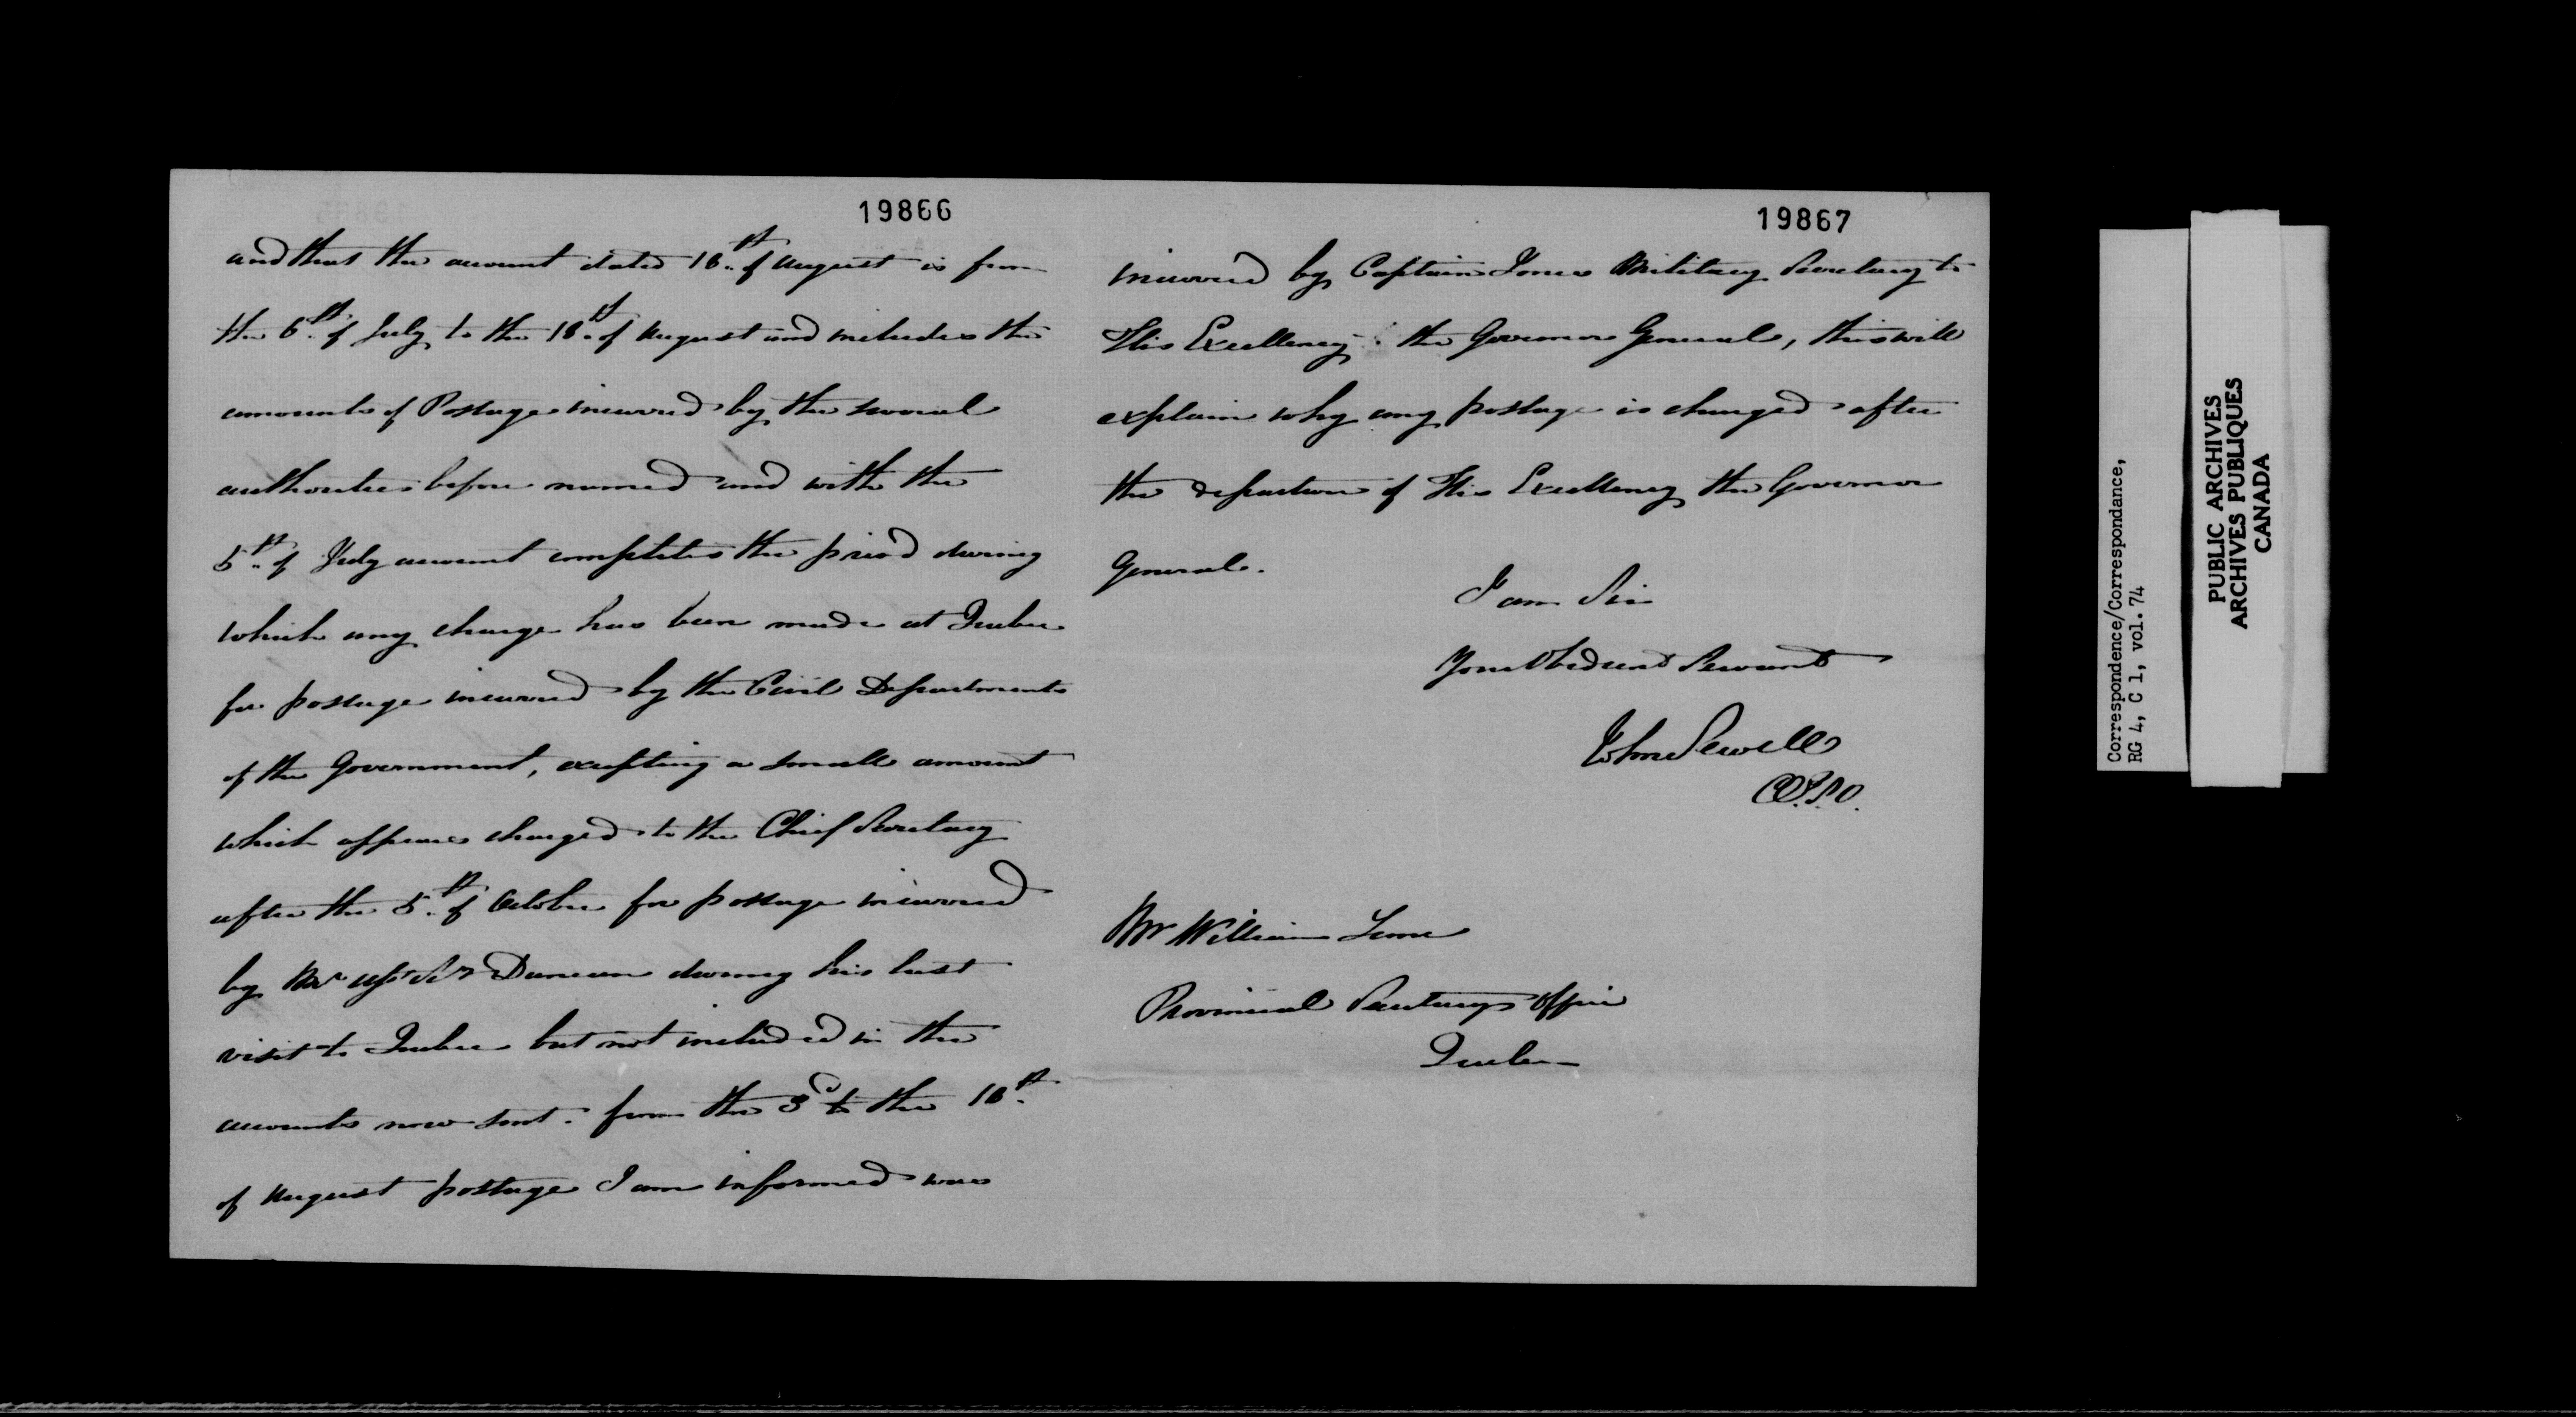 19866
and that the account dated 18th of August is from
the 6th of July to the 18th of August and includes the
amounts of Postage incurred by the several
authorities before named and with the
5th of July account completes the period during
which any charge has been made at Quebec
for postage incurred by the Civil Departments
of the Government, excepting a small amount
which appears charged to the Chief Secretary
after the 5th of October for postage incurred
by Mr Duncan during his last
visit to Quebec but not included in the
accounts now sent. from the 3d to the 18th
of August postage I am informed was
19867
incurred by Captain Jones Military Secretary to
His Excellency the Governor General, this will
explain why any postage is charged after
the departure of His Excellency the Governor
General.
I am Sir
Your Obedient Servant
John Sewell
Mr William
Provincial Secretarys Office
Quebec
Correspondence/Correspondance,
RG 4, C 1, vol. 74
PUBLIC ARCHIVES
ARCHIVES PUBLIQUES
CANADA